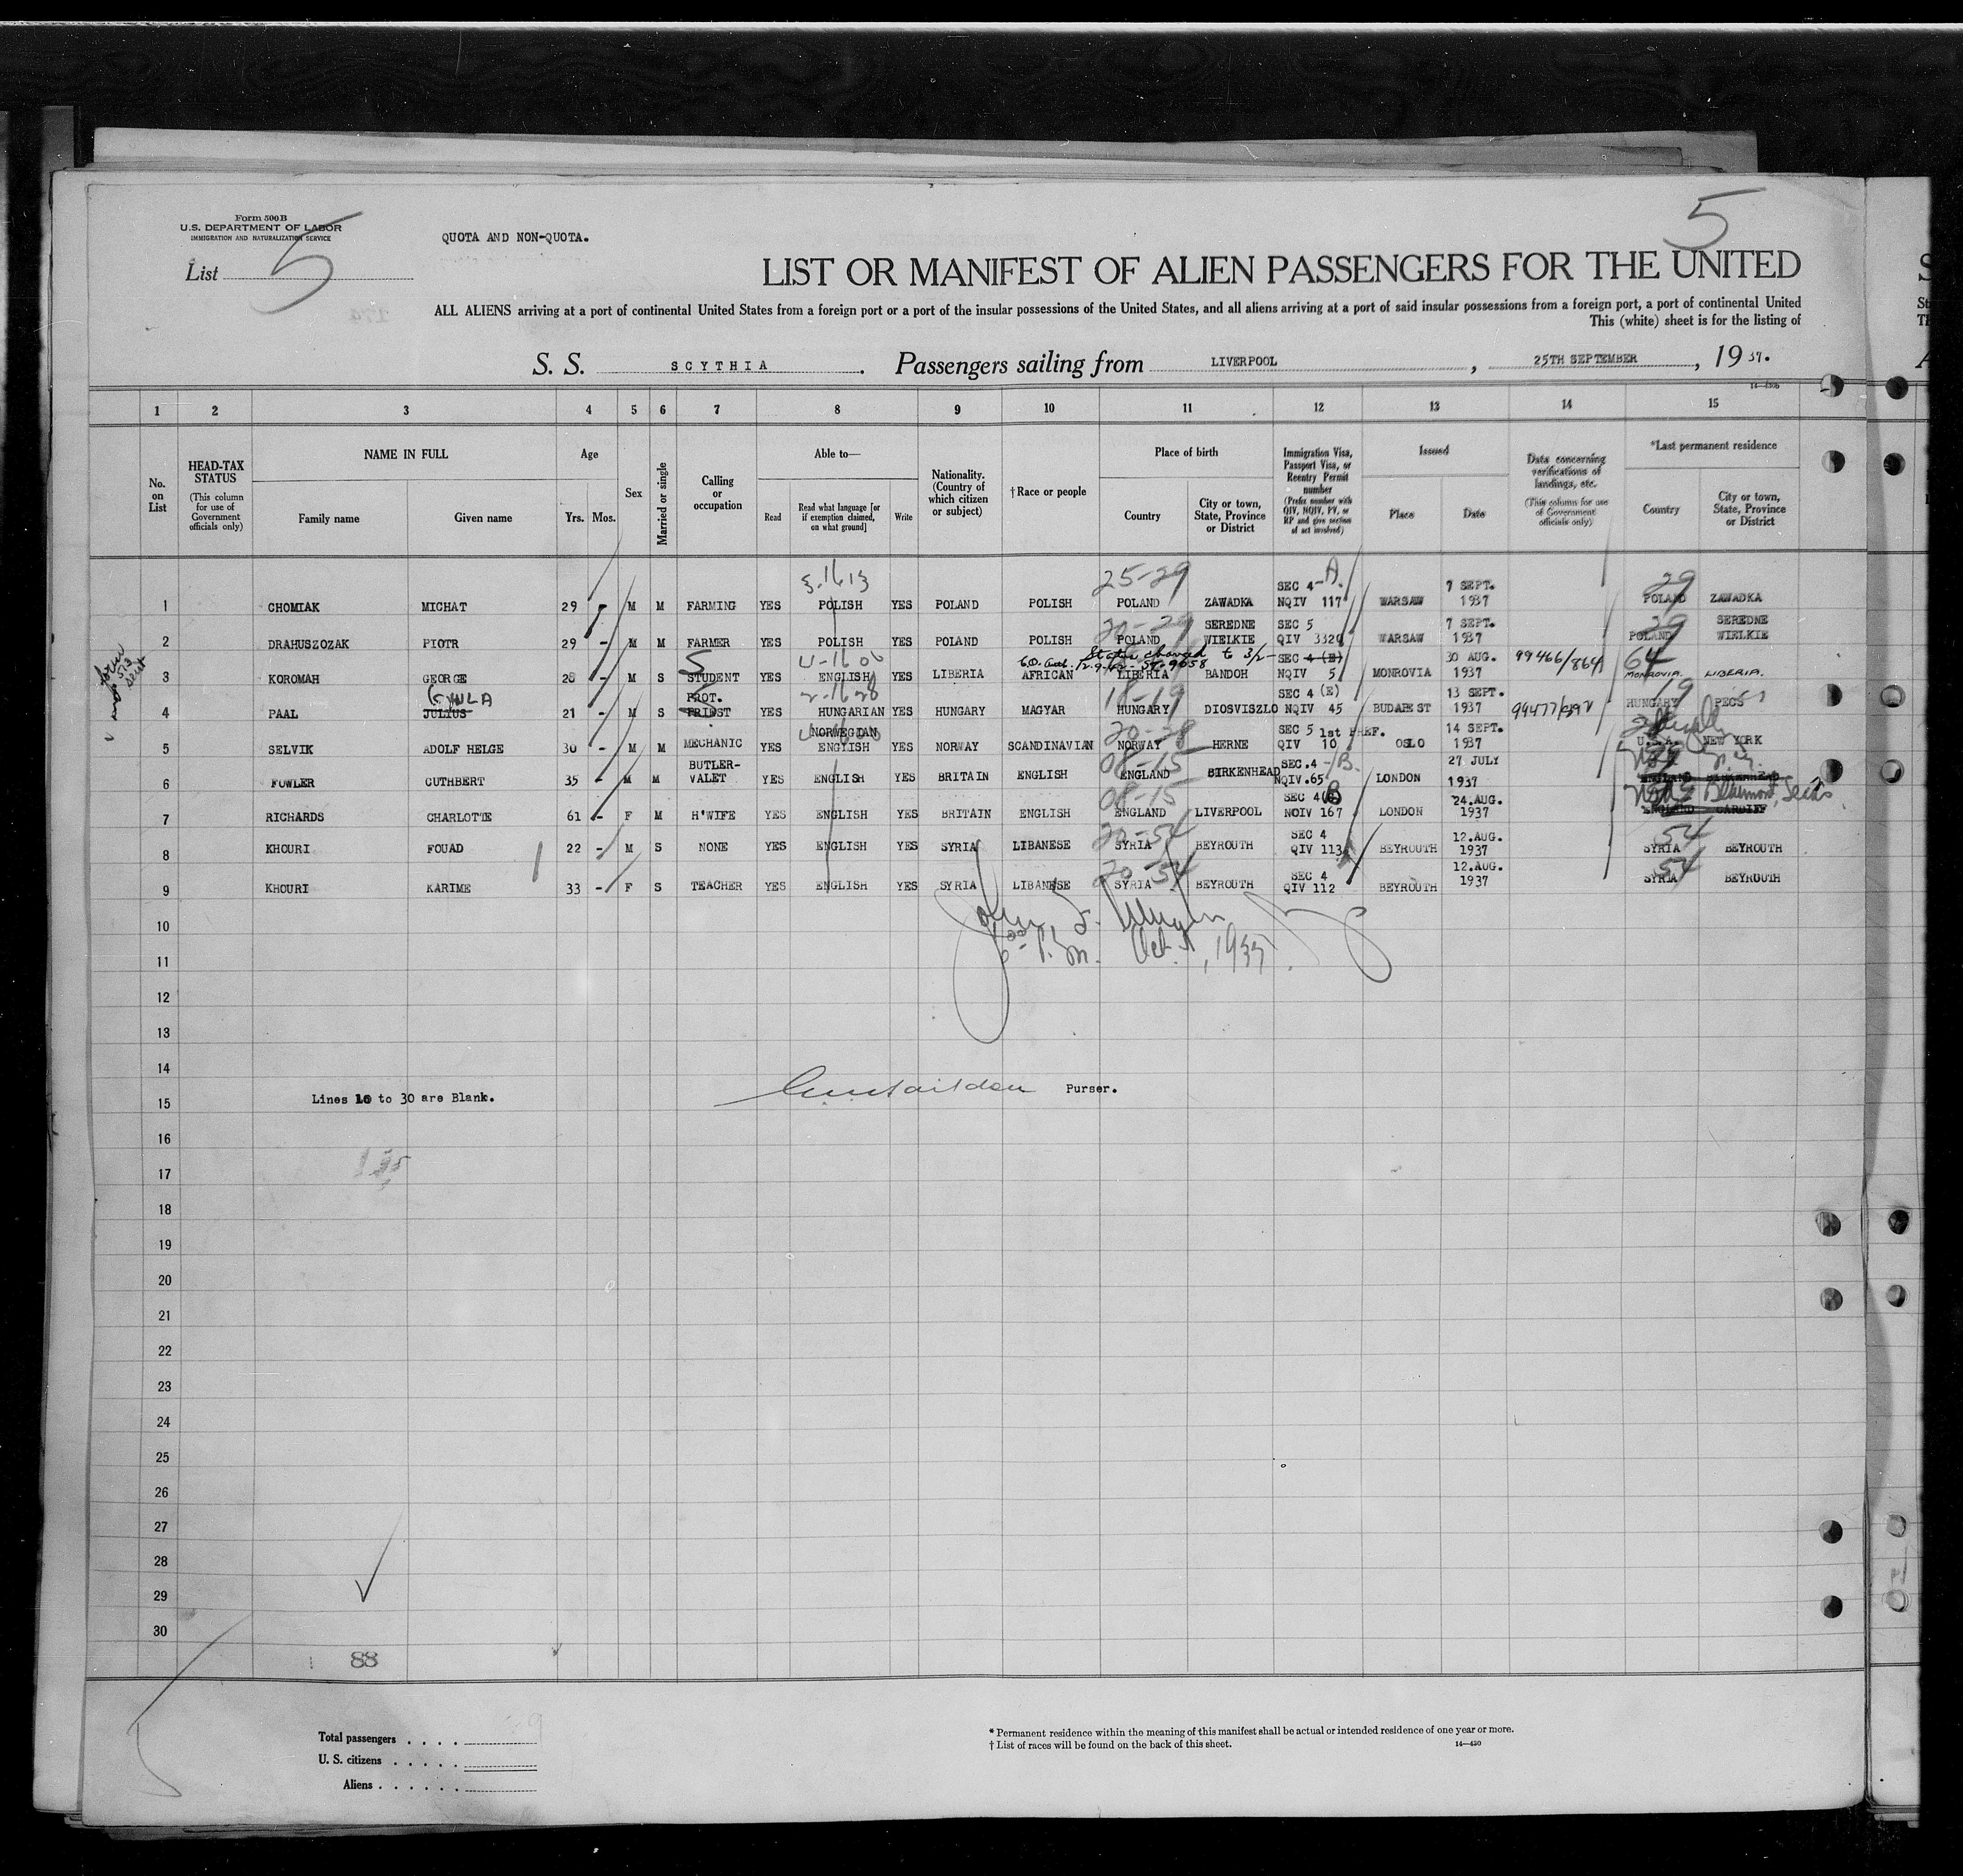 5
Form 500 B
U.S. DEPARTMENT OF LABOR
IMMIGRATION AND NATURALIZATION SERVICE
QUOTA AND NON-QUOTA.
List 5
LIST OR MANIFEST OF ALIEN PASSENGERS FOR THE UNITED
ALL ALIENS arriving at a port of continental United States from a foreign port or a port of the insular possessions of the United States, and all aliens arriving at a port of said insular possessions from a foreign port, a port of continental United
This (white) sheet is for the listing of
S. S. SCYTHIA. Passengers sailing from LIVERPOOL, 25TH SEPTEMBER, 1937.
14—430b
1 2 3 4 5 6 7 8 9 10 11 12 13 14 15
No. on List
HEAD-TAX STATUS (This column for use of Government officials only)
NAME IN FULL
Family name
Given name
Age
Yrs. Mos.
Sex
Married or single
Calling or occupation
Able to—
Read
Read what language [or if exemption claimed, on what ground]
Write
Nationality. (Country of which citizen or subject)
†Race or people
Place of birth
Country
City or town, State, Province or District
Immigration Visa, Passport Visa, or Reentry Permit number (Prefix number with QIV, NQIV, PV, or RP and give section of act involved)
Issued
Place
Date
Data concerning verifications of landings, etc. (This column for use of Government officials only)
*Last permanent residence
Country
City or town, State, Province or District
3-1613 25-29 SEC 4-A. 7 SEPT. 29
1 CHOMIAK MICHAT 29 - M M FARMING YES POLISH YES POLAND POLISH POLAND ZAWADKA NQIV 117 WARSAW 1937 POLAND ZAWADKA
20-29 SEREDNE SEC 5 7 SEPT. 29 SEREDNE
2 DRAHUSZOZAK PIOTR 29 - M M FARMER YES POLISH YES POLAND POLISH POLAND WIELKIE QIV 3320 WARSAW 1937 POLAND WIELKIE
Status changed to 3/2- SEC 4 (E) 30 AUG. 99466/864 64
3 KOROMAH GEORGE 28 - M S STUDENT YES ENGLISH YES LIBERIA AFRICAN LIBERIA BANDOH NQIV 5 MONROVIA 1937 MONROVIA. LIBERIA.
GYULA PROT. 2-1628 18-19 SEC 4 (E) 13 SEPT. 19
4 PAAL JULIUS 21 - M S PRIEST YES HUNGARIAN YES HUNGARY MAGYAR HUNGARY DIOSVISZLO NQIV 45 BUDAPEST 1937 HUNGARY PECS
NORWEGIAN 20-28 SEC 5 1st PREF. 14 SEPT.
5 SELVIK ADOLF HELGE 30 - M M MECHANIC YES ENGLISH YES NORWAY SCANDINAVIAN NORWAY HERNE QIV 10 OSLO 1937 U.S.A. NEW YORK
BUTLER- 08-15 SEC.4-B. 27 JULY
6 FOWLER CUTHBERT 35 - M M VALET YES ENGLISH YES BRITAIN ENGLISH ENGLAND BIRKENHEAD NQIV.65 LONDON 1937 ENGLAND BIRKENHEAD
08-15 SEC 4(B) 24.AUG. Beaumont, Texas
7 RICHARDS CHARLOTTE 61 - F M H'WIFE YES ENGLISH YES BRITAIN ENGLISH ENGLAND LIVERPOOL NQIV 167 LONDON 1937 ENGLAND CARDIFF
20-54 SEC 4 12.AUG. 54
8 KHOURI FOUAD 22 - M S NONE YES ENGLISH YES SYRIA LIBANESE SYRIA BEYROUTH QIV 113 BEYROUTH 1937 SYRIA BEYROUTH
20-54 SEC 4 12.AUG. 54
9 KHOURI KARIME 33 - F S TEACHER YES ENGLISH YES SYRIA LIBANESE SYRIA BEYROUTH QIV 112 BEYROUTH 1937 SYRIA BEYROUTH
10
P.M. Oct. , 1937.
11
12
13
14
Purser.
15 Lines 10 to 30 are Blank.
16
17
18
19
20
21
22
23
24
25
26
27
28
29
30
88
Total passengers
U. S. citizens
Aliens
* Permanent residence within the meaning of this manifest shall be actual or intended residence of one year or more.
† List of races will be found on the back of this sheet. 14—430